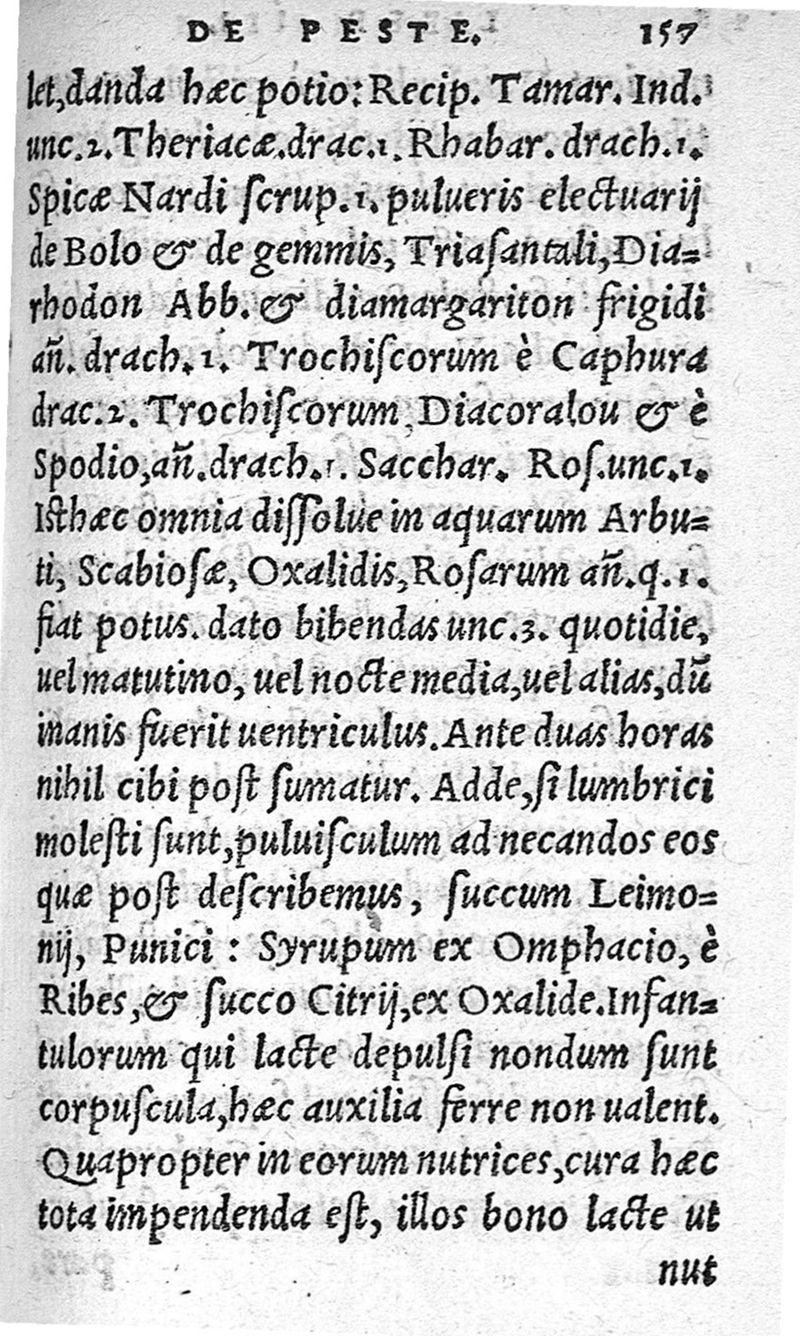 DE PESTE. 157
let,danda hæc potio: Recip. Tamar. Ind.
unc.2.Theriacæ.drac.1.Rhabar. drach.1.
Spicæ Nardi ſcrup.1. pulueris electuarij
de Bolo & de gemmis, Triaſantali,Dia=
rhodon Abb. & diamargariton frigidi
añ. drach.1. Trochiſcorum è Caphura
drac.2. Trochiſcorum, Diacoralou & è
Spodio,añ.drach.1. Sacchar. Roſ.unc.1.
Iſthæc omnia diſſolue in aquarum Arbu=
ti, Scabioſæ, Oxalidis,Roſarum añ.q.1.
fiat potus. dato bibendas unc.3. quotidie,
uel matutino, uel nocte media,uel alias,dũ
inanis fuerit uentriculus. Ante duas horas
nihil cibi poſt ſumatur. Adde,ſi lumbrici
moleſti ſunt,puluiſculum ad necandos eos
quæ poſt deſcribemus, ſuccum Leimo=
nij, Punici: Syrupum ex Omphacio, è
Ribes,& ſucco Citrij,ex Oxalide.Infan=
tulorum qui lacte depulſi nondum ſunt
corpuſcula,hæc auxilia ferre non ualent.
Quapropter in eorum nutrices,cura hæc
tota impendenda eſt, illos bono lacte ut
nut